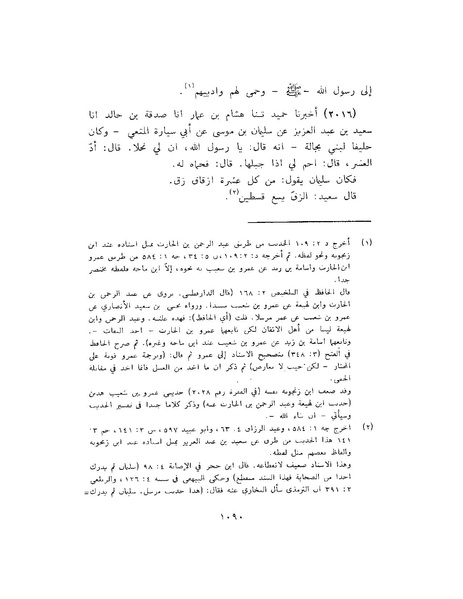 إلى رسول الله -ﷺ - وحمى لهم واديهم(١).
(٢٠١٦) أخبرنا حميد ثنا هشام بن عمار انا صدقة بن خالد انا
سعيد بن عبد العزيز عن سليمان بن موسى عن أبي سيارة المتعي - وكان
حليفا لبني بجالة - انه قال: يا رسول الله، ان لي نحلا. قال: أدّ
العشر، قال: احم لي اذا جبلها. قال: فحماه له.
فكان سليمان يقول: من كل عشرة ازقاق زق.
قال سعيد: الزقّ يسع قسطين(٢).
(١) أخرج د ٢: ١٠٩ الحديث من طريق عبد الرحمن بن الحارث بمثل اسناده عند ابن
زنجويه ونحو لفظه. ثم أخرجه د: ٢: ١٠٩، ن ٥: ٣٤، جه ١: ٥٨٤ من طرق عمرو
ابن الحارث واسامة بن زيد عن عمرو بن شعيب به نحوه، إلاّ ابن ماجه فلفظه مختصر
جداً.
قال الحافظ في التلخيص ٢: ١٦٨ (قال الدارقطني: يروى عن عبد الرحمن بن
الحارث وابن لهيعة عن عمرو بن شعيب مسنداً. ورواه يحيى بن سعيد الأنصاري عن
عمرو بن شعيب عن عمر مرسلا. قلت (أي الحافظ): فهذه علته. وعبد الرحمن وابن
لهيعة ليسا من أهل الاتقان لكن تابعهما عمرو بن الحارث - أحد الثقات -.
وتابعهما أسامة بن زيد عن عمرو بن شعيب عند ابن ماجه وغيره). ثم صرح الحافظ
في الفتح (٣: ٣٤٨) بتصحيح الاسناد إلى عمرو ثم قال: (وترجمة عمرو قوية على
المختار - لكن حيث لا تعارض) ثم ذكر ان ما اخذ من العسل فانما اخذ في مقابلة
الحمى.
وقد ضعف ابن زنجويه نفسه (في الفقرة رقم ٢٠٢٨) حديثي عمرو بن شعيب هذين
(حديث ابن لهيعة وعبد الرحمن بن الحارث عنه) وذكر كلاما جيدا في تفسير الحديث
وسيأتي - ان شاء الله -.
(٢) أخرج جه ١: ٥٨٤، وعبد الرزاق ٤: ٦٣، وابو عبيد ٥٩٧، ش ٣: ١٤١، حم ٣
١٤١ هذا الحديث من طرق عن سعيد بن عبد العزيز بمثل اسناده عند ابن زنجويه
والفاظ بعضهم مثل لفظه.
وهذا الاسناد ضعيف لانقطاعه. قال ابن حجر في الإصابة ٤: ٩٨ (سليمان لم يدرك
احدا من الصحابة فهذا السند منقطع) وحكى البيهقي في سننه ٤: ١٢٦، والزيلعي
٢: ٣٩١ ان الترمذي سأل البخاري عنه فقال: (هذا حديث مرسل. سليمان لم يدرك=
١٠٩٠